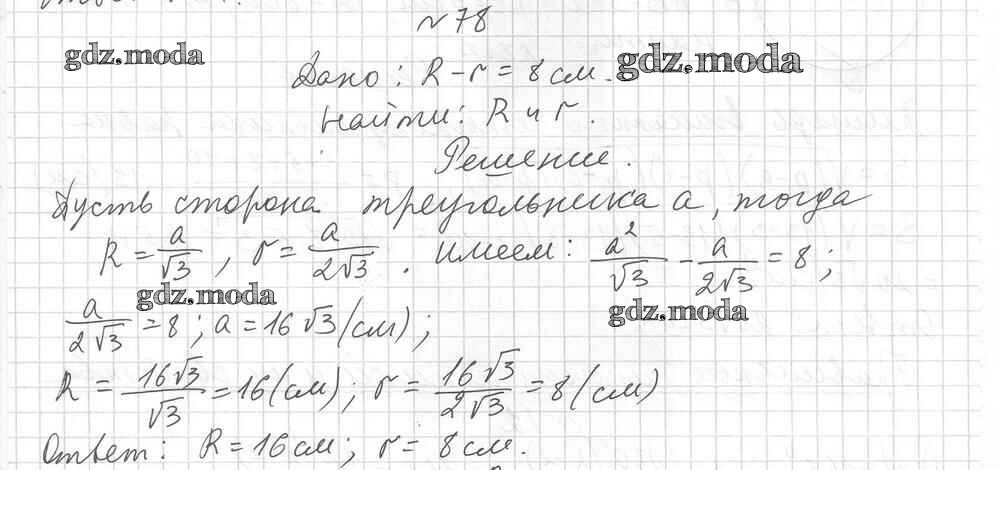 №78
gdz.moda
gdz.moda
Дано: R - r = 8 см.
Найти: R и r.
Решение.
Пусть сторона треугольника a, тогда
R = a/√3, r = a/2√3. Имеем: a²/√3 - a/2√3 = 8;
gdz.moda
gdz.moda
a/2√3 = 8; a = 16√3 (см);
R = 16√3/√3 = 16 (см); r = 16√3/2√3 = 8 (см)
Ответ: R = 16 см; r = 8 см.